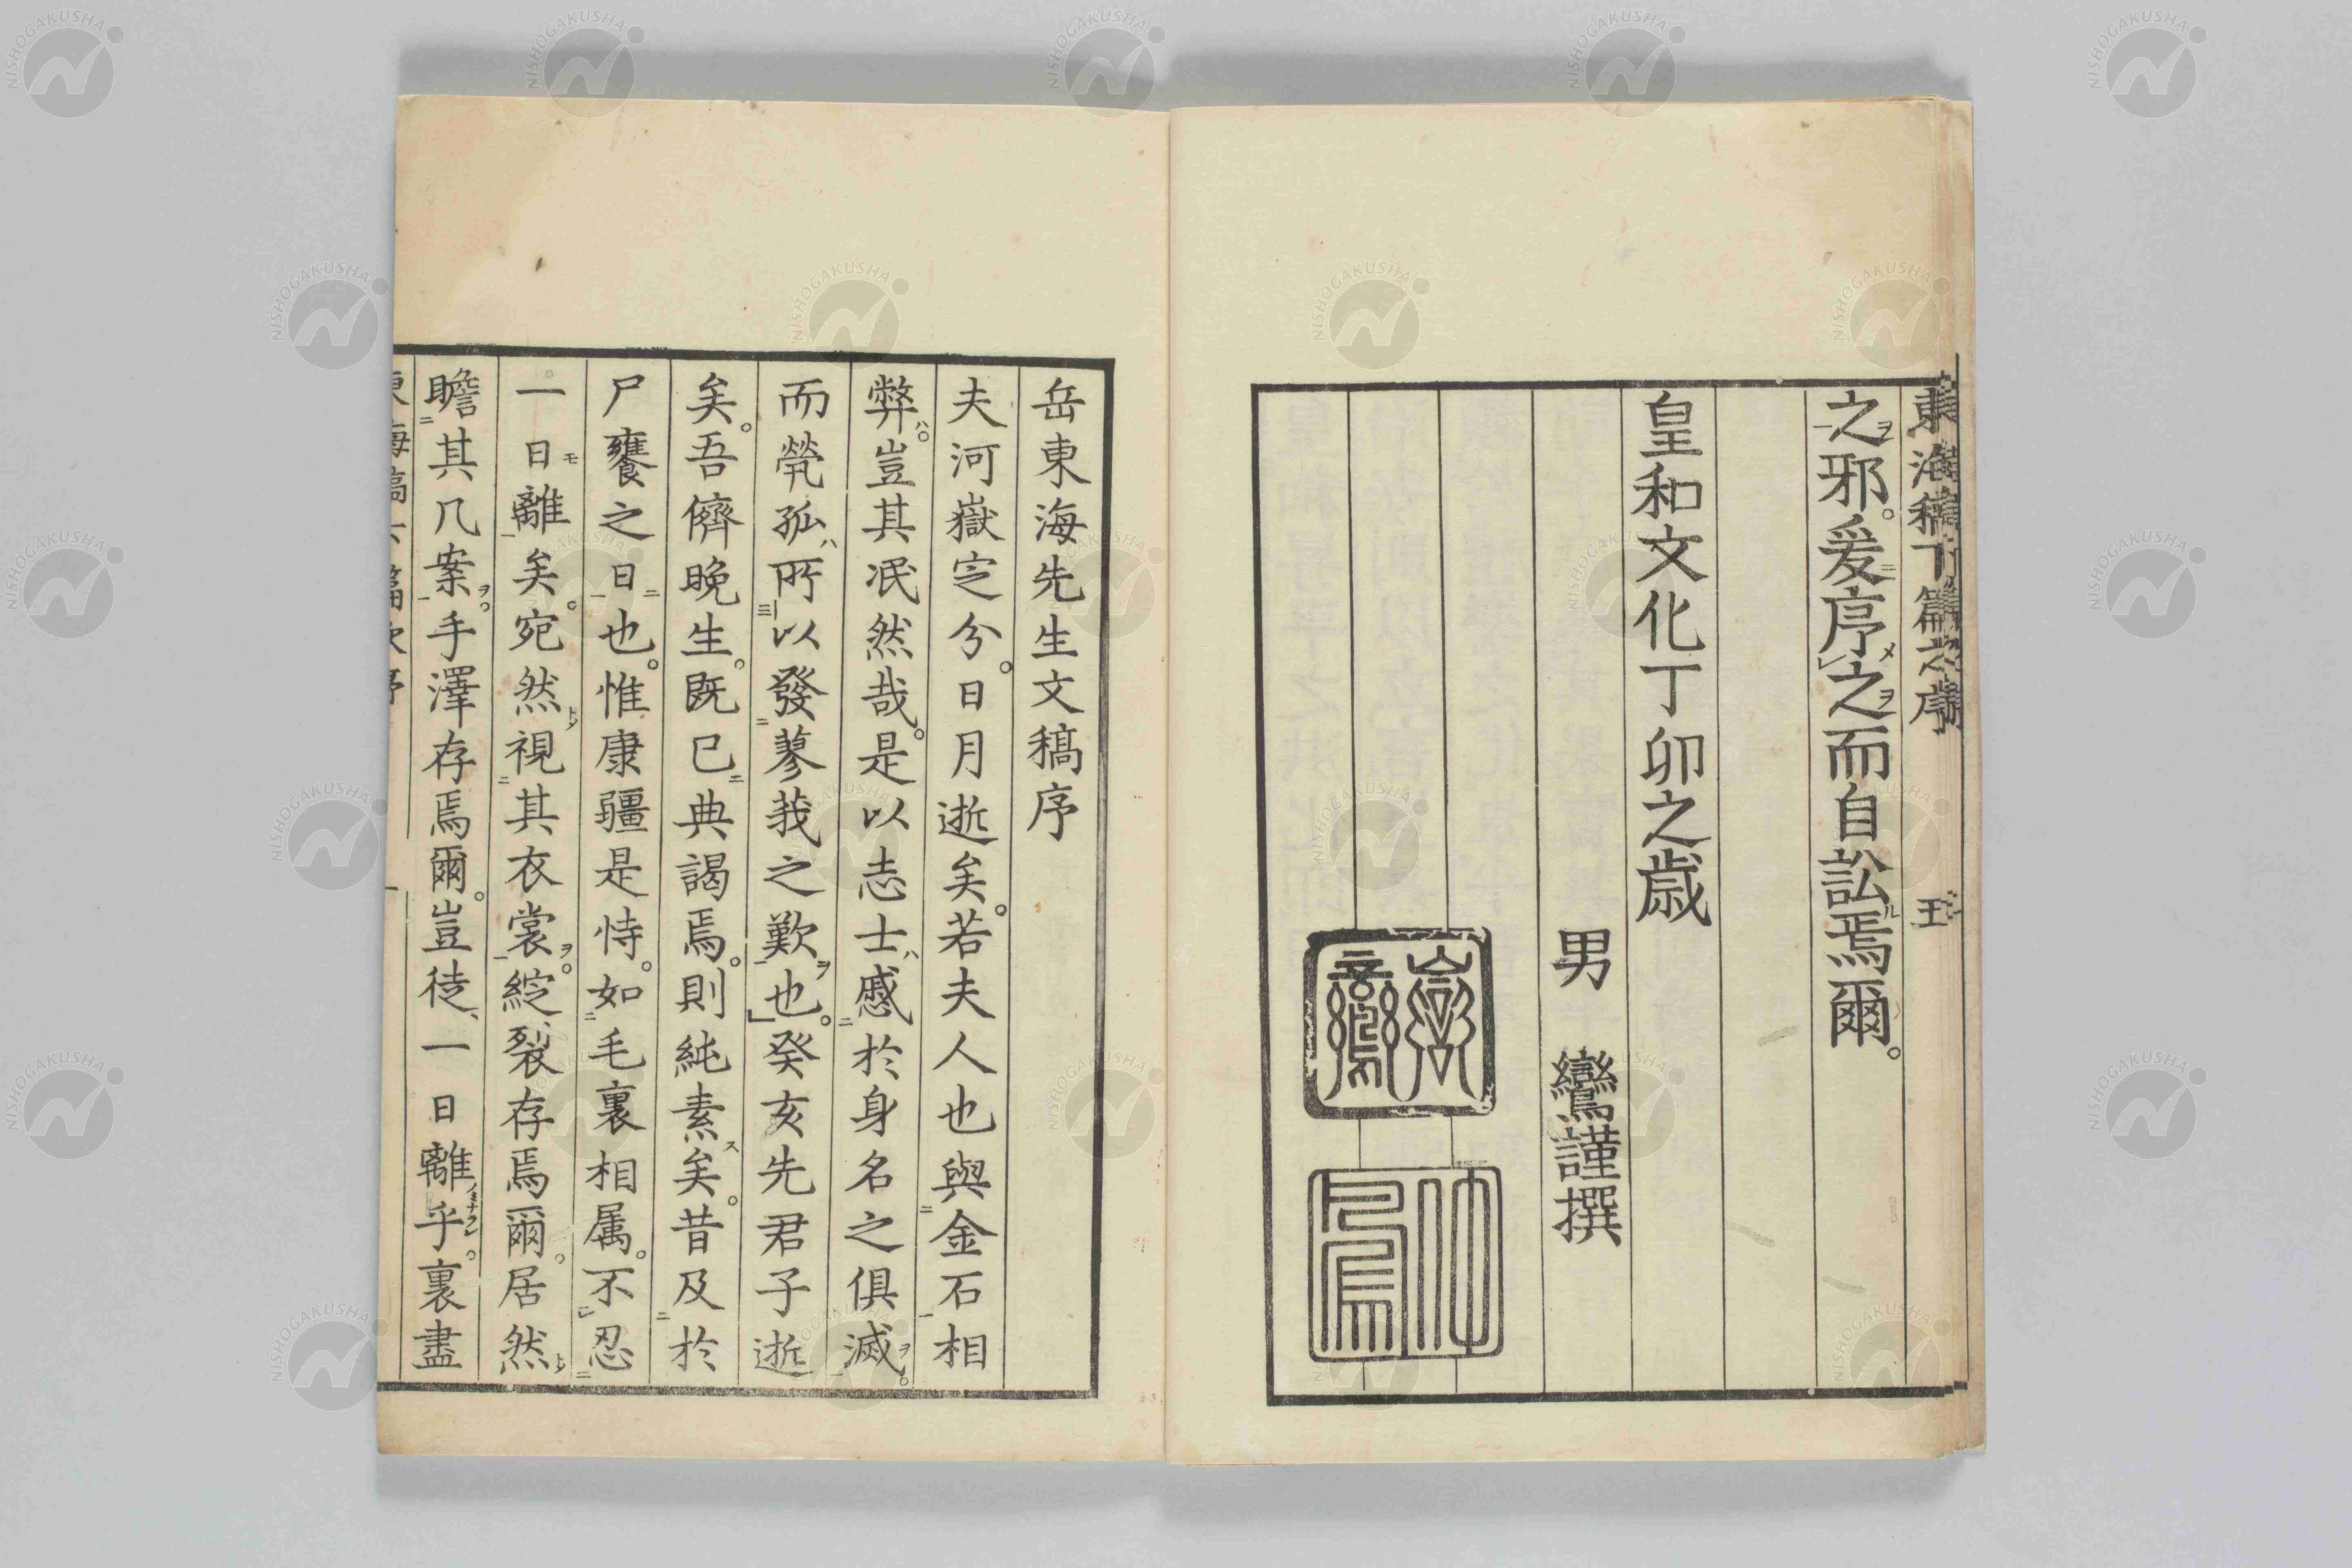 之邪。爰序之而自訟焉爾。
皇和文化丁卯之歲
男 鸞謹撰
岳東海先生文稿序
夫河嶽定分。日月逝矣。若夫人也與金石相
弊。豈其泯然哉。是以志士慼於身名之俱滅。
而煢孤所以發蓼莪之歎也。癸亥先君子逝
矣。吾儕晚生。既已典謁焉。則純素矣。昔及於
尸饔之日也。惟康彊是恃。如毛裏相属。不忍
一日離矣。宛然視其衣裳。綻裂存焉爾。居然
瞻其几案。手澤存焉爾。豈徒一日離乎。裏盡
NISHOGAKUSHA